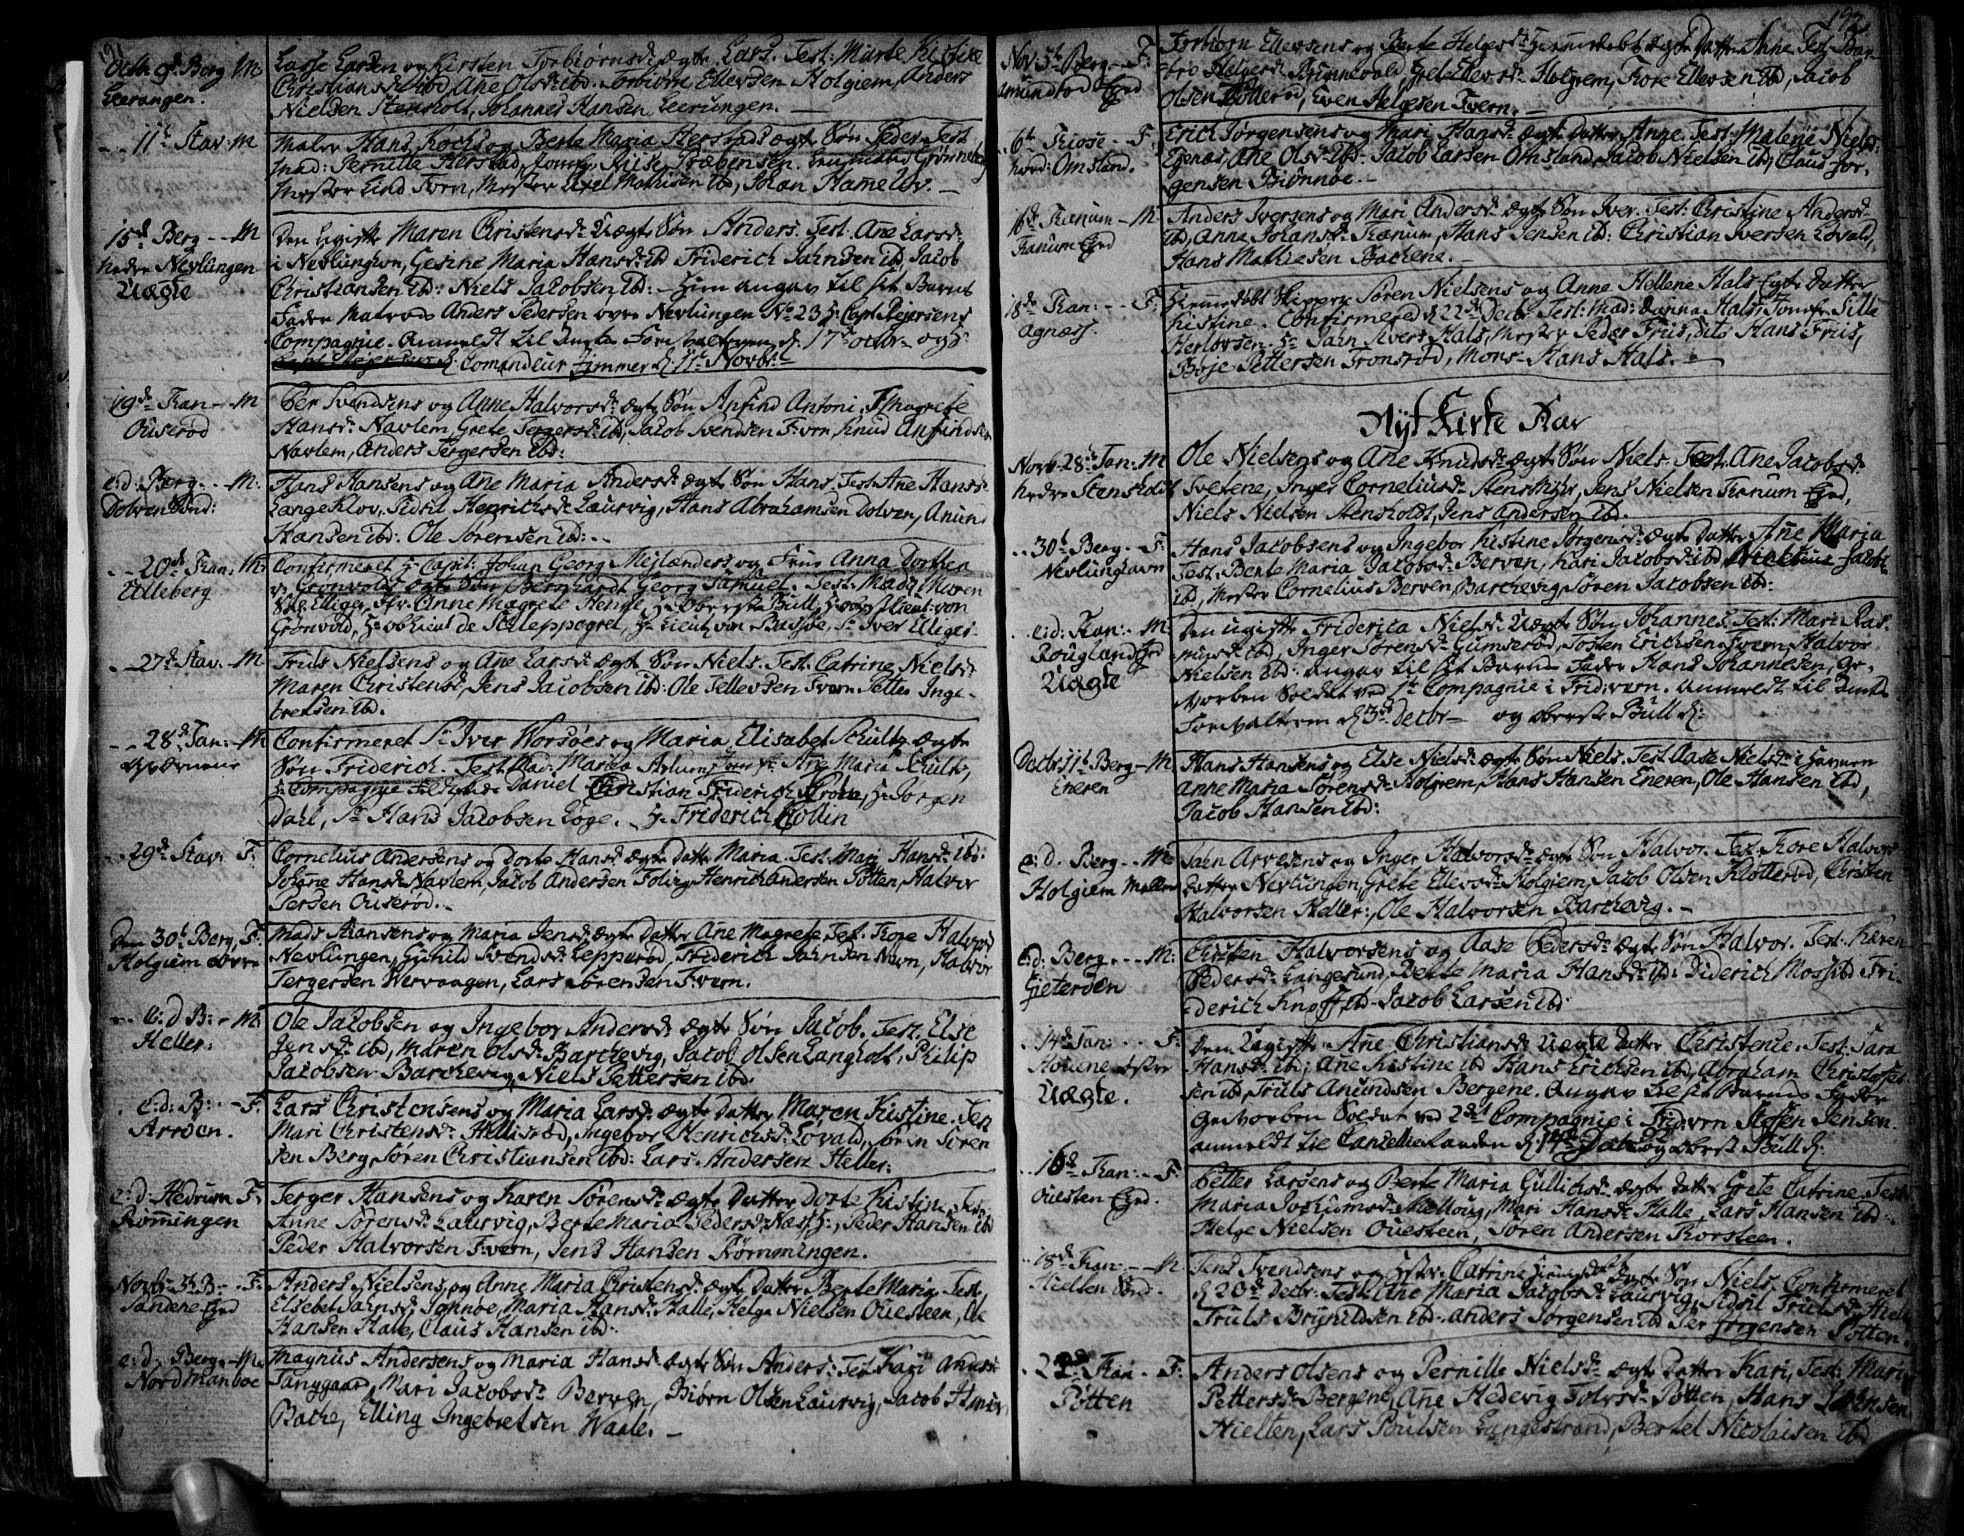 191
Octb: 9d. Berg M
Leerangen.
Lasse Larsen og Kirsten Torbiørnsd: ægte Lars. Test: Marte Kistine
Christiansd: ibd, Ane Olsd: ibd: Torbiørn Ellevsen Holgiem, Anders
Nielsen Stensholt, Johannes Hansen Leerungen.
11t Stav: M
Maler Hans Kochs og Berte Maria Herstads ægte Søn Peder. Test
Mad: Pernille Herstad, Jomfr:
Mester Lind Tvern, Mester Axel Mathisen ibd, Johan
15d Berg - M
Nedre Nevlungen
Uægte
Den Ugifte Maren Christensd: Uægte Søn Anders. Test. Ane Larsd:
i Nevlunghvn, Gesine Maria Hansd: ibd Friderich Jahnsen ibd, Jacob
Christiansen ibd: Niels Jacobsen ibd: - Hun angav til sit Barns
Fader Matros Anders Pedersen øvre Nevlungen No 23 H: Capt. Reiersens
Compagnie. Anmeldt til Amts Forvalteren d. 17d octbr - og H:
d: Comandeur Zimmer d: 11t Novbr
19d Tan - M
Ouserød
Per Svendsens og Anne Halvorsd: ægte Søn Anfind Antoni. T: Magrete
Hansd: Navlem, Grete Tergersd: ibd, Jacob Svendsen F:vern, Knud Anfindsen
Navlem, Anders Tergersen ibd:
e: d: Berg - M:
Dolven Sønd:
Hans Hansens og Ane Maria Andersd: ægte Søn Hans. Test Ane Hansd:
Langeklov, Sidsil Henrichsd: Laurvig, Hans Abrahamsen Dolven, Anund
Hansen ibd: Ole Sørensen ibd:
20d Tan: M:
Ulleberg
Confirmeret H: Capit: Johan Georg Mejlænders og Frue Anna Dorthea
v: Grønvolds ægte Søn Bernhardt Georg Samuel. Test: Mad: Maren
Elliger, Ffr. Anne Magrete Henne, H: Oberste Bull, H: Obrstlieut: von
Grønvold, H: Obrlieut de Schleppegrel, H: Lieut, von Bassøe, Sr Iver Elliger
27d Stav. M
Truls Nielsens og Ane Larsd: ægte Søn Niels. Test. Catrine Nielsd:
Maren Christensd, Jens Jacobsen ibd: Ole Tellevsen Tvern, Petter Inge-
bretsen ibd.
28d Tan: M
Confirmeret Sr Iver Worsøes og Maria Elisabet Schultz ægte
Søn Friderich. Test. Mad: Maria Ane Maria Schultz,
Daniel Christian Friderich H: Jørgen
Dahl, Sr Hans Jacobsen Loge. H: Friderich Collin
29d Stav: F:
Cornelius Andersens og Dorte Hansd: ægte Datter Maria. Test. Mari Hansd: ibd:
Johanne Hansd: Navlem, Jacob Andersen Foldvig, Henrich Andersen Pøtten, Halvor
Persen Ouserød.
Den 30t Berg, F:
Holgiem øvre
Mads Hansens og Maria Jensd: ægte Datter Ane Magrete. Test. Tore Halvorsd:
Nevlungen, Gunild Svendsd: Lepperød, Friderich Jahnsen Navn, Halvor
Tergersen Wervaagen, Lars Sørensen F:vern.
e: d B: - M:
Heller:
Ole Jacobsen og Ingebor Andersd: ægte Søn Jacob. Test. Else
Jensd: ibd, Maren Olsd: Barchevig, Jacob Olsen Langholt, Philip
Jacobsen Barchevig, Niels Pettersen ibd.
e: d: B: - F:
Arrøen.
Lars Christensens og Maria Larsd: ægte Datter Maren Kistine. Test
Mari Christensd: Hellisrød, Ingebor Henrichsd: Løvald, Søren Søren
sen Berg, Søren Christiansen ibd: Lars Andersen Heller.
e: d: Hedrum F:
Rømmingen
Terger Hansens og Karen Sørensd: ægte Datter Dorte Kistine. Test.
Anne Sørensd: Laurvig, Berte Maria Pedersd: Næss H:, Peder Hansen ibd
Peder Halvorsen F:vern, Jens Hansen Rømmingen.
Novbr 5t B: - F:
Sandene Ejed
Anders Nielsens og Anne Maria Christensd: ægte Datter Berte Maria. Test,
Elsebet Jahnsd: Jomnøe, Maria Hansd: Halle, Helge Nielsen Ouesteen, Ole
Hansen Halle, Claus Hansen ibd:
e: d. Berg. - M.
Nordmanboe
Magnus Andersens og Maria Hansd: ægte Søn Anders: Test. Kari Andersd:
Tanggaard, Mari Jacobsd: Berven, Biørn Olsen Laurvig, Jacob
Bache, Elling Ingebretsen Waale. -
192
Nov 5t Berg - F:
Amundrød Ejed
Torbiørn Ellevsens og Berte Helgesd: Hiemmedøbt ægte Datter Anne. Test. Bar-
bro Helgesd: Brunnevald, Grete Ellevsd: Holgiem, Tore Ellevsen ibd, Jacob
Olsen Kløtterød, Even Helgesen Tvern.
6t Kiose - F:
nord: Omsland.
Erich Jørgensens og Mari Hansd: ægte Datter Anne. Test: Malene Nielsd:
Egenæs, Ane Olsd: ibd: Jacob Larsen Omsland, Jacob Nielsen ibd, Claus Jør-
gensen Biønnøe.
16d: Tanum - M:
Tanum Ejed
Anders Iversens og Mari Andersd: ægte Søn Iver. Test: Christine Andersd:
ibd, Anna Johansd: Tanum, Hans Jensen ibd: Christian Iversen Løvald,
Hans Mathiesen Bachene.
18d: Tan: - F:
Agnæs.
Hiemmedøbt Skipper Søren Nielsens og Anne Hellene Hals ægte Datter
Kistine. Confirmered d 22d Decbr Test: Mad: Hals, Jomfr Sille
Herlovsen. Sr Jahn Ivers Hals, Mester Peder Friis, dito Hans Friis,
Børje Pettersen Tronsrød, Mons: Hans Hals. -
Nyt Kirke Aar
Novb. 28d: Tan: M
nedre Stensholt
Ole Nielsens og Ane Knudsd: ægte Søn Niels. Test. Ane Jacobsd:
Svetene, Inger Corneliusd: Stensholt, Jens Nielsen Tanum Ejed,
Niels Nielsen Stensholdt, Jens Andersen ibd.
30t Berg. F.
Nevlunghavn
Hans Jacobsens og Ingebor Kistine Jørgensd: ægte Datter Ane Maria
Test. Berte Maria Jacobsd: Berven, Kari Jacobsd: ibd, Nicoline Jacobsd:
ibd, Mester Cornelius Berven, Barchevig, Søren Jacobsen ibd:
e: d: Tan: - M:
Rougland Ejed
Uægte
Den ugifte Friderica Nielsd: Uægte Søn Johannes. Test: Mari Ras-
musd: ibd, Inger Sørensd: Gumserød, Tosten Erichsen F:vern, Halvor
Nielsen ibd: angav til sit Barns Fader Hans Johannesen, Ge-
vorben Soldat ved 1te Compagnie i Frid:vern. anmeldt til Amts
Forvalteren d 3d Decbr - og Oberste Bull d:
Decbr 11t Berg - M
Eneren
Hans Hansens og Else Nielsd: ægte Søn Niels. Test. Aase Nielsd: i Havnen
Anne Maria Sørensd: Holgiem, Hans Hansen Eneren, Ole Hansen ibd,
Jacob Hansen ibd:
e: d. Berg - M
Holgiem Mellem
Jahn Arvesens og Inger Halvorsd: ægte Søn Halvor. Test. Tore Halvors
datter Nevlungen, Grete Ellevsd: Holgiem, Jacob Olsen Kløtterød, Christen
Halvorsen Heller:, Ole Halvorsen Barchevig. -
e: d: Berg - M:
Gieterøen
Christen Halvorsens og Aase Pedersd: ægte Søn Halvor. Test: Karen
Pedersd: Langesund, Berte Maria Hansd: ibd: Diderich Moss ibd Fri-
derich Knoff ibd: Jacob Larsen ibd:
14d Tan: - F:
Houene
Uægte.
Den Ugifte Ane Christiansd: Uægte Datter Christence. Test: Sara
Hansd: ibd; Ane Kistine ibd Hans Erichsen ibd, Abraham Christofer
sen ibd, Truls Anundsen Bergene. angav til sit Barns Fader
Gevorben Soldat ved 2det Compagnie i Frid:vern Steffen Jensen.
anmeldt til Cancellieraaden d. og Oberst Bull d:
16d Tan: - F:
Ouesten Ejed.
Petter Larsens og Berte Maria Gullichsd: ægte Datter Grete Catrine. Test
Maria Jochumsd: Melloug, Mari Hansd: Halle, Lars Hansen ibd:
Helge Nielsen Ouesteen, Søren Andersen Torsteen.
18d Tan: - M
Hielten Sønd.
Jens Svendsens og Catrine Hiemmedøbt ægte Søn Niels, Confirmeret
d 20d Decbr. Test: Ane Maria Jacobsd: Laurvig, Sidsil Trulsd: Hielt
Truls Brynildsen ibd: Anders Jørgensen ibd Per Jørgensen Pøtten.
22d Tan. - F:
Pøtten
Anders Olsens og Pernille Nielsd: ægte Datter Kari, Test: Mari
Pettersd: Bergene, Ane Hedevig Tolvsd: Pøtten, Hans Sørensen
Hielten, Lars Poulsen Langestrand, Bertel Nicolaisen ibd